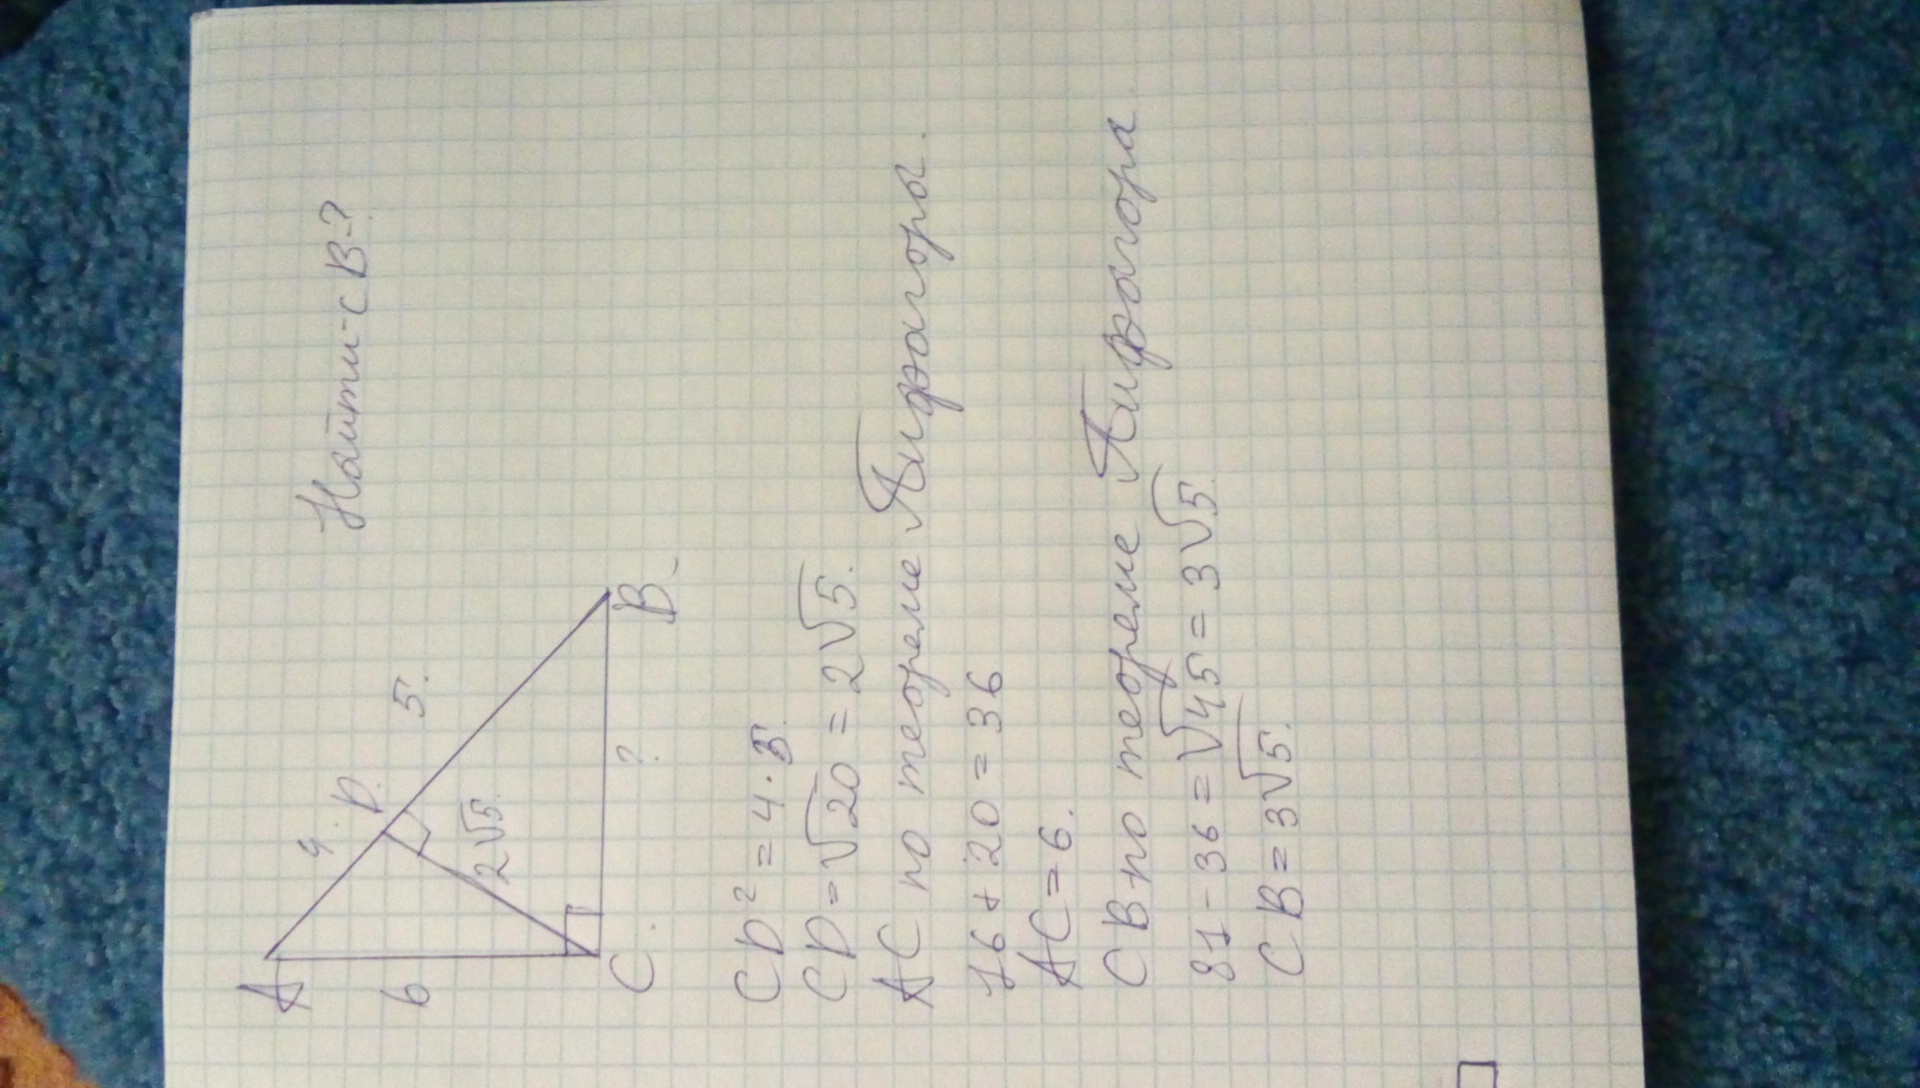 Найти-CB-?
A
4
D.
5.
6
2√5.
C.
?
B
CD² = 4·5.
CD=√20 = 2√5.
AC по теореме Пифагора.
16+20=36
AC=6.
CB по теореме Пифагора
81-36=√45=3√5.
CB=3√5.